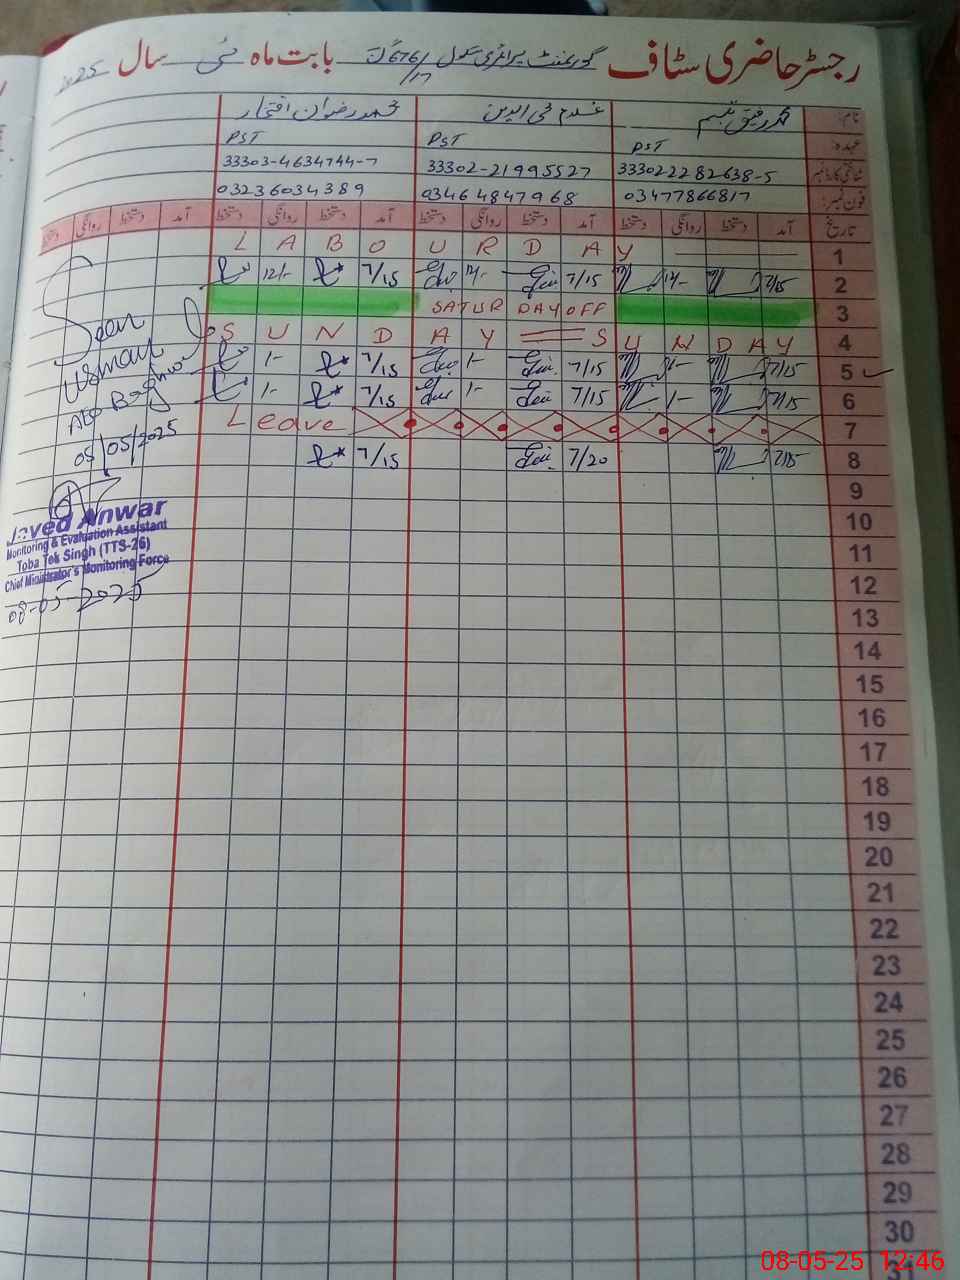 رجسٹر حاضری سٹاف گورنمنٹ پرائمری سکول 676/17 گ ب بابت ماہ مئی سال 2025
نام: محمد رفیق تبسم غلام محی الدین محمد رضوان افتخار
عہدہ: PST PST PST
شناختی کارڈ نمبر 333022282638-5 33302-21995527 33303-4634744-7
فون نمبر: 03477866817 03464847968 03236034389
تاریخ آمد دستخط روانگی دستخط آمد دستخط روانگی دستخط آمد دستخط روانگی دستخط آمد دستخط روانگی دستخط
L A B O U R D A Y 1
12/- 7/15 12/- 7/15 12/- 7/15 2
SATURDAY OFF 3
S U N D A Y = S U N D A Y 4
1/- 7/15 1/- 7/15 1/- 7/15 5
1/- 7/15 1/- 7/15 1/- 7/15 6
Leave 7
7/15 7/20 7/15 8
9
10
11
12
13
14
15
16
17
18
19
20
21
22
23
24
25
26
27
28
29
30
31
Seen
Usman
AEO
05/05/2025
Javed Anwar
Monitoring & Evaluation Assistant
Toba Tek Singh (TTS-26)
Chief Minister's Monitoring Force
08-05-2025
08-05-25 12:46